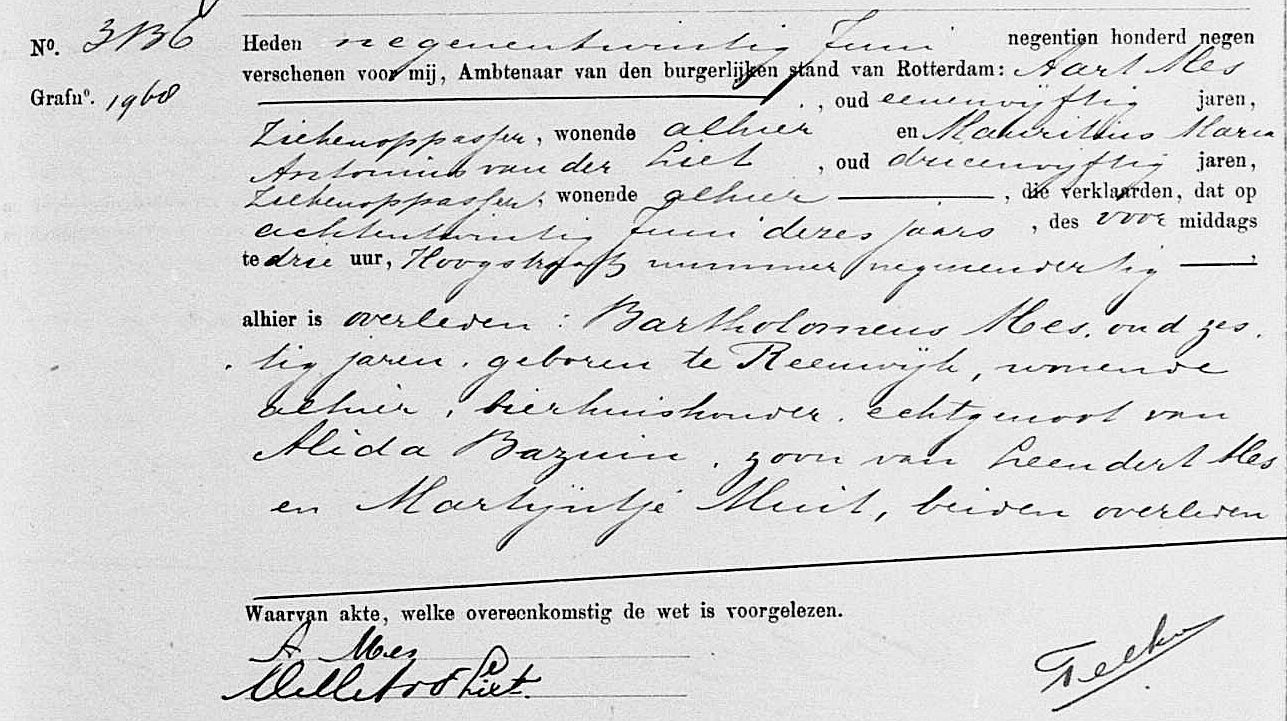 No. 3136
Grafno. 1968
Heden negenentwintig Juni negentien honderd negen
verschenen voor mij, Ambtenaar van den burgerlijken stand van Rotterdam: Aart Mes
, oud eenenvijftig jaren,
Ziekenoppasser, wonende alhier en Mauritius Maria
Antonius van der Liet, oud drieenvijftig jaren,
Ziekenoppasser, wonende alhier, die verklaarden, dat op
achtentwintig Juni dezes jaars, des voor middags
te drie uur, Hoogstraat nummer negenendertig,
alhier is overleden: Bartholomeus Mes, oud zes,
tig jaren, geboren te Reeuwijk, wonende
alhier, bierhuishouder, echtgenoot van
Alida Bazuin, zoon van Leendert Mes
en Martijntje Muit, beiden overleden
Waarvan akte, welke overeenkomstig de wet is voorgelezen.
A Mes
Liet.